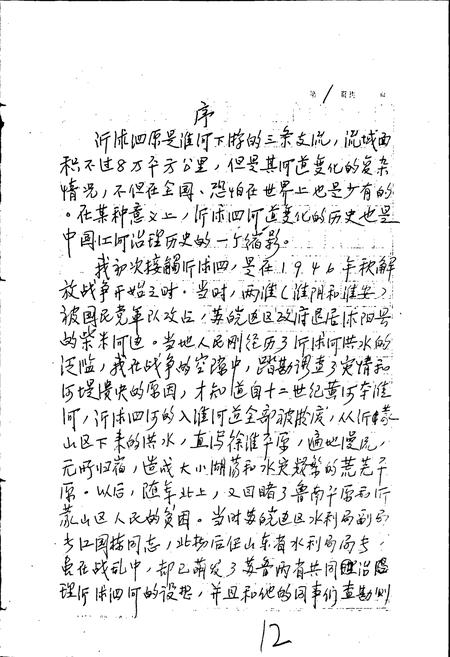 第 1 页 共 页
序
沂沭泗原是淮河下游的三条支流，流域面
积不过8万平方公里，但是其河道变化的复杂
情况，不但在全国、恐怕在世界上也是少有的
。在某种意义上，沂沭泗河道变化的历史也是
中国江河治理历史的一个缩影。
我初次接触沂沭泗，是在1946年秋解
放战争开始之时。当时，两淮（淮阴和淮安）
被国民党军队攻占，苏皖边区政府退居沭阳县
的柴米河边。当地人民刚经历了沂沭河洪水的
泛滥，我在战争的空隙中，踏勘调查了灾情和
河堤溃决的原因，才知道自十二世纪黄河夺淮
河，沂沭泗河的入淮河道全部被淤废，从沂蒙
山区下来的洪水，直泻徐淮平原，遍地漫流，
无所归宿，造成大小湖荡和水灾频繁的荒芜平
原。以后，随军北上，又目睹了鲁南平原和沂
蒙山区人民的贫困。当时苏皖边区水利局副局
长江国栋同志，北撤后任山东省水利局局长，
虽在战乱中，却已萌发了苏鲁两省共同治
理沂沭泗河的设想，并且和他的同事们查勘
12